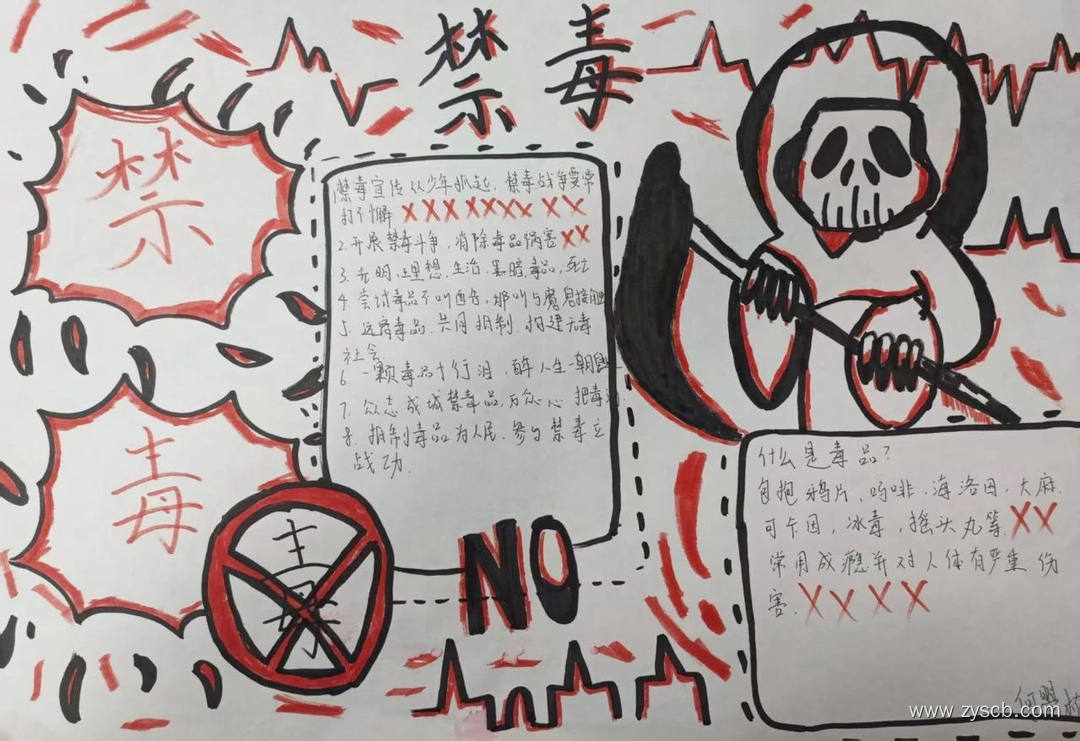 禁毒
禁
毒
毒
禁毒宣传从少年抓起，禁毒战争要常
打不懈 XXXXXXX XX
2.开展禁毒斗争，消除毒品祸害XX
3.光明，理想，生活，黑暗，毒品，死亡
4.尝试毒品不叫勇气，那叫与魔鬼接
5.远离毒品，共同抵制，构建无毒
社会
6.一颗毒品千行泪，醉人生一朝
7.众志成城禁毒品，万众心把毒
8.抵制毒品为人民，参与禁毒立
战功.
NO
什么是毒品？
包抱鸦片，吗啡，海洛因，大麻，
可卡因，冰毒，摇头丸等XX
常用成瘾并对人体有严重伤
害.XXXX
何
www.zyscb.com